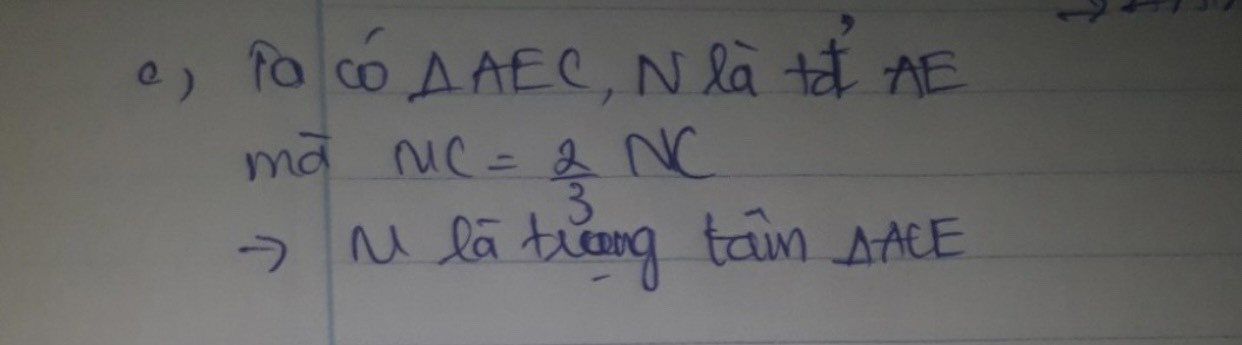 c) Ta có ΔAEC, N là tđ AE
mà MC = 2/3 NC
→ M là trọng tâm ΔACE